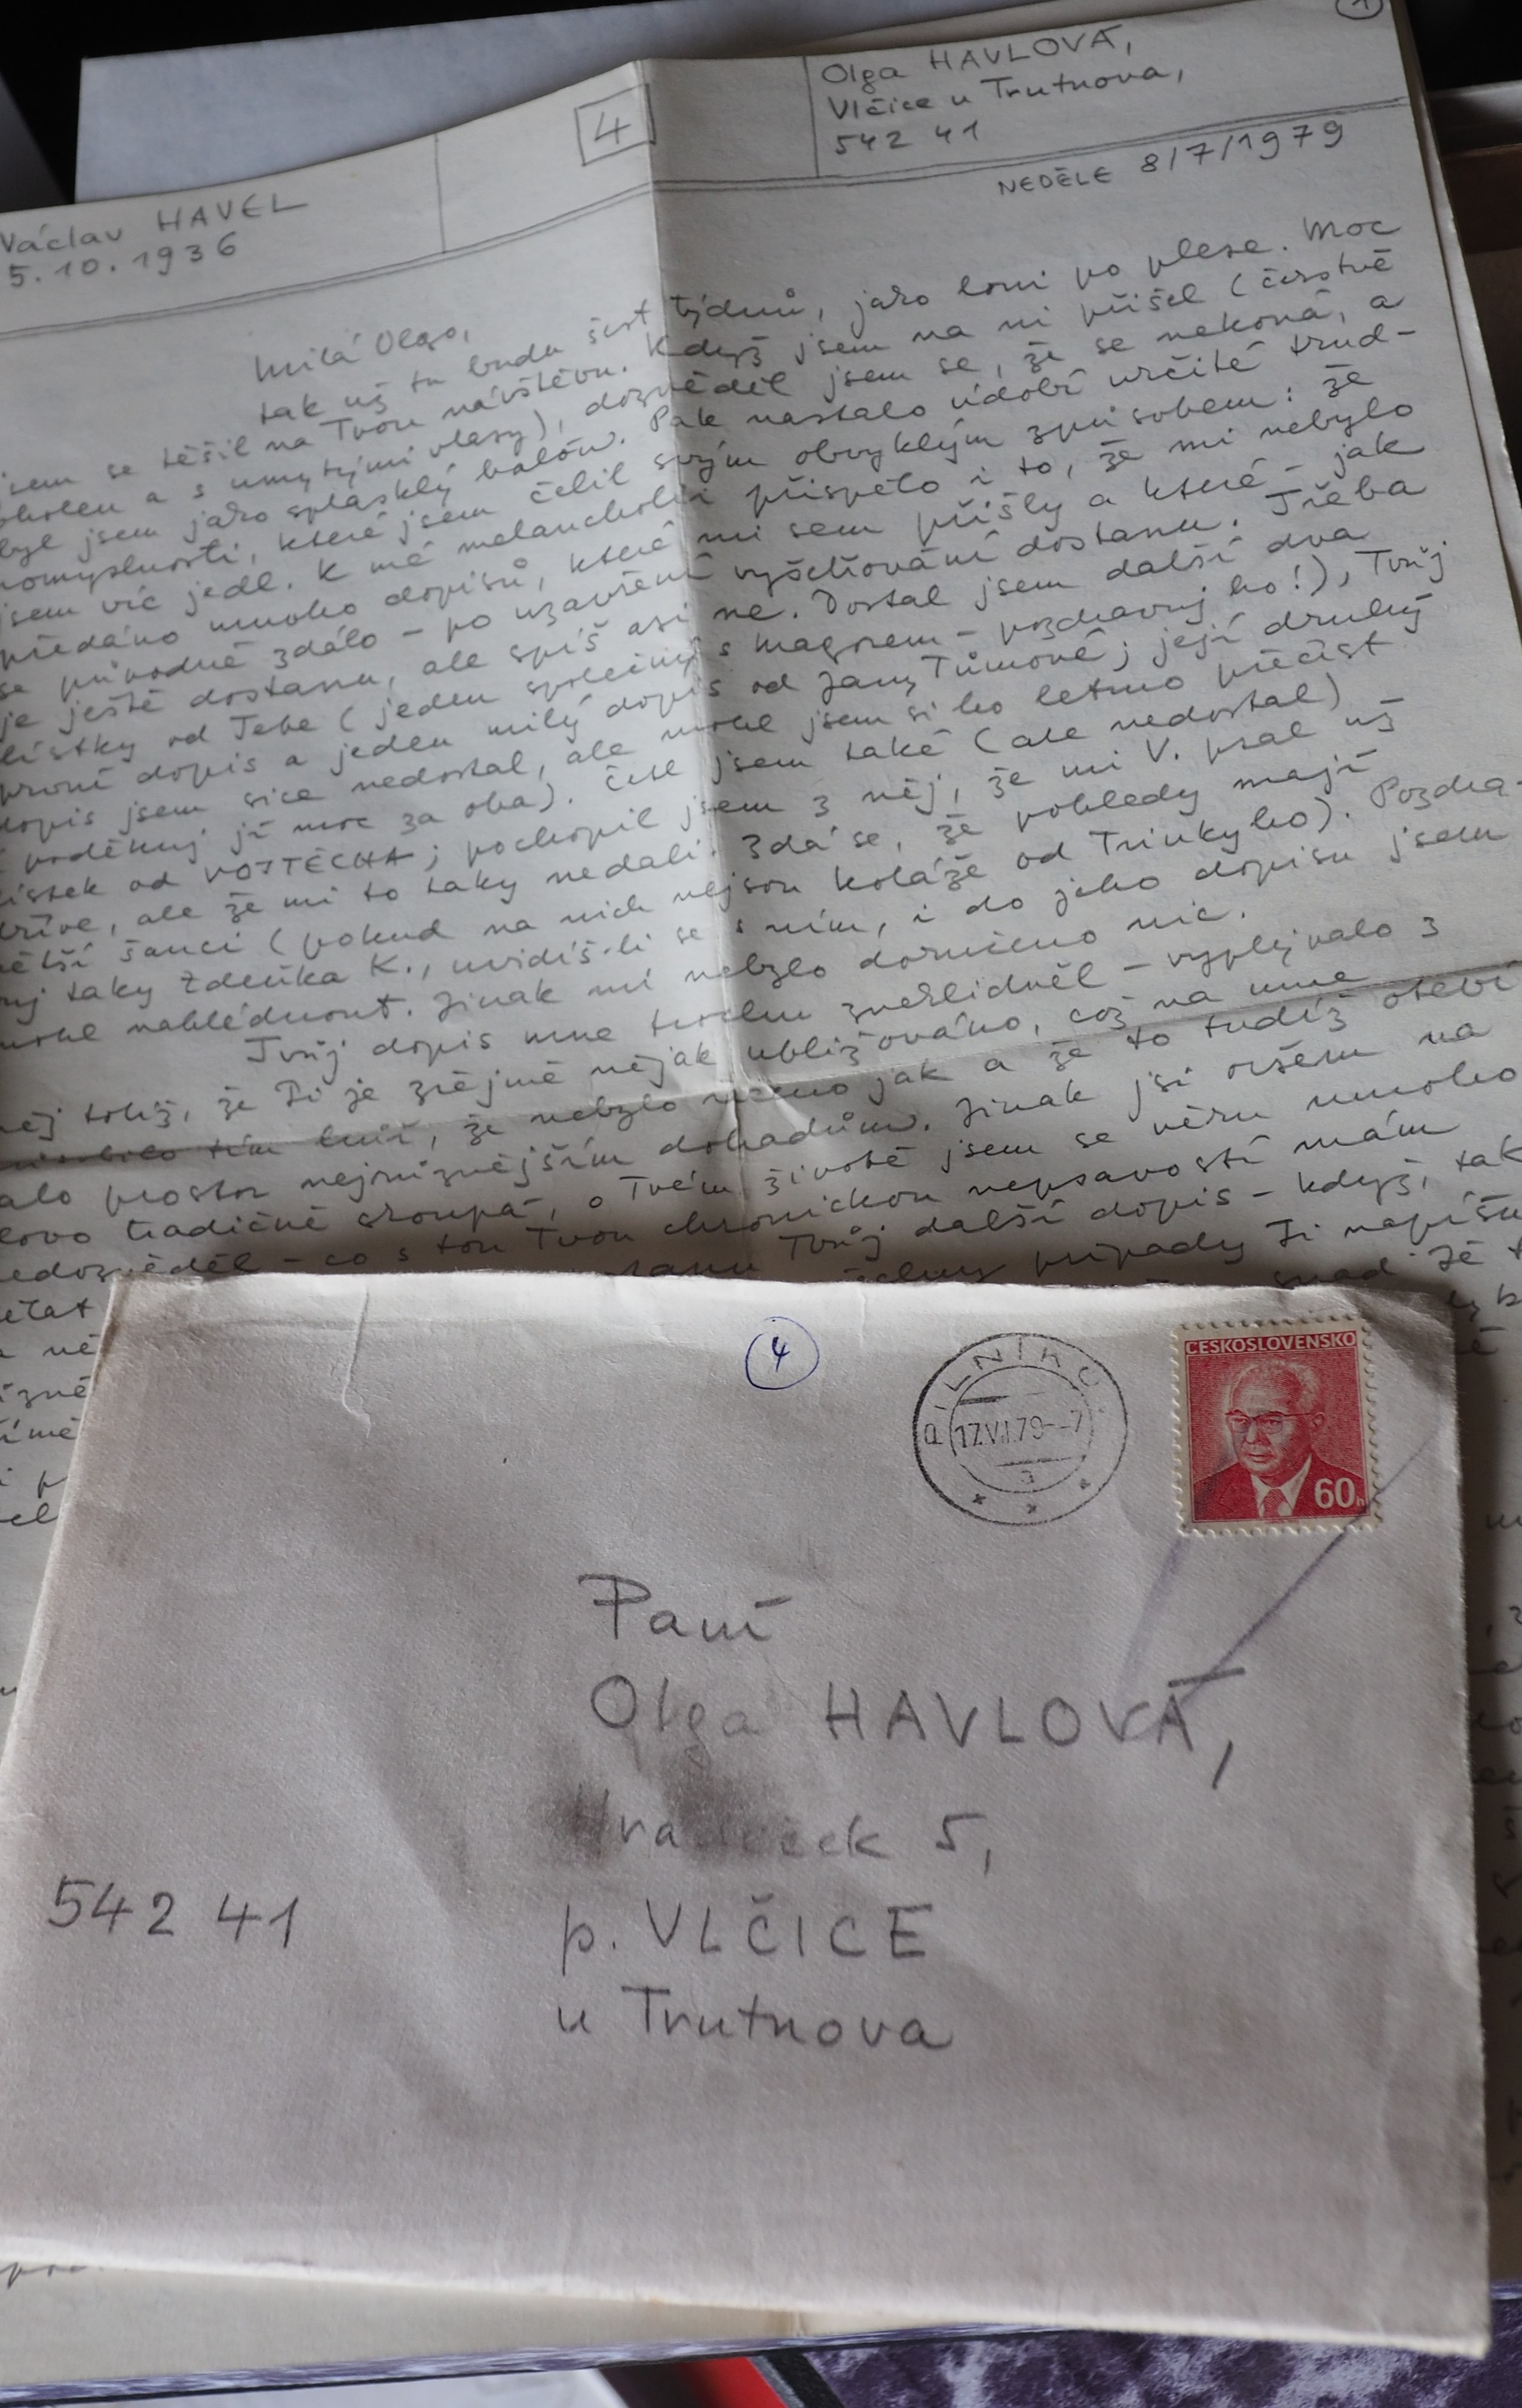 1
Olga HAVLOVÁ,
Vlčice u Trutnova,
542 41
4
NEDĚLE 8/7/1979
Václav HAVEL
5.10.1936
Milá Olgo,
tak už tu budu šest týdnů, jako loni po plese. Moc
jsem se těšil na Tvou návštěvu. Když jsem na ni přišel (čerstvě
oholen a s umytými vlasy), dozvěděl jsem se, že se nekoná, a
byl jsem jako splasklý balón. Pak nastalo údobí určité trud-
nomyslnosti, které jsem čelil svým obvyklým způsobem: že
jsem víc jedl. K mé melancholii přispělo i to, že mi nebylo
předáno mnoho dopisů, které mi sem přišly a které - jak
se původně zdálo - po uzavření vyšetřování dostanu. Třeba
je ještě dostanu, ale spíš asi ne. Dostal jsem další dva
lístky od Tebe (jeden společný s Magorem - pozdravuj ho!), Tvůj
první dopis a jeden milý dopis od Jany Tůmové; její druhý
dopis jsem sice nedostal, ale mohl jsem si ho letmo přečíst
poděkuj jí moc za oba). Četl jsem také (ale nedostal)
lístek od VOJTĚCHA; pochopil jsem z něj, že mi V. psal už
dříve, ale že mi to taky nedali. Zdá se, že pohledy mají
větší šanci (pokud na nich nejsou koláže od Trinkyho). Pozdra-
vuj taky Zdeňka K., uvidíš-li se s ním, i do jeho dopisu jsem
mohl nahlédnout. Jinak mi nebylo doručeno nic.
Tvůj dopis mne trochu zneklidněl - vyplývalo z
něj totiž, že Ti je zřejmě nějak ubližováno, což na mne
tím hůř, že nebylo řečeno jak a že to tudíž otevř
alo prostor nejrůznějším dohadům. Jinak jsi ovšem na
slovo tradičně skoupá, o Tvém životě jsem se věru mnoho
nedozvěděl - co s tou Tvou chronickou nepsavostí mám
dělat
Tvůj další dopis - když, tak
případy Ti napíšu
snad Tě
4
PILNÍKOV
17.VII.79--7
a
ČESKOSLOVENSKO
60h
Paní
Olga HAVLOVÁ,
Hrádeček 5,
542 41
p. VLČICE
u Trutnova